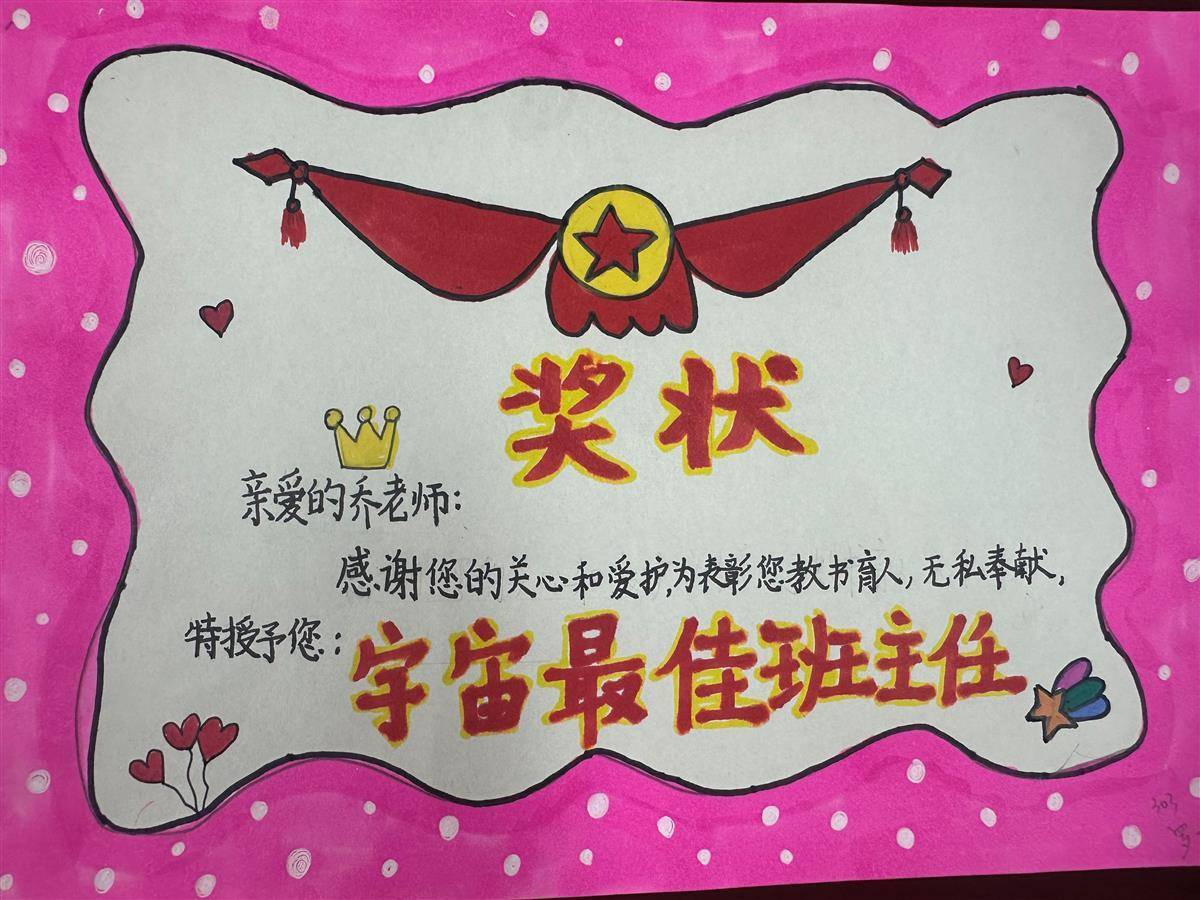 奖状
亲爱的乔老师:
感谢您的关心和爱护,为表彰您教书育人,无私奉献,
特授予您:宇宙最佳班主任
303